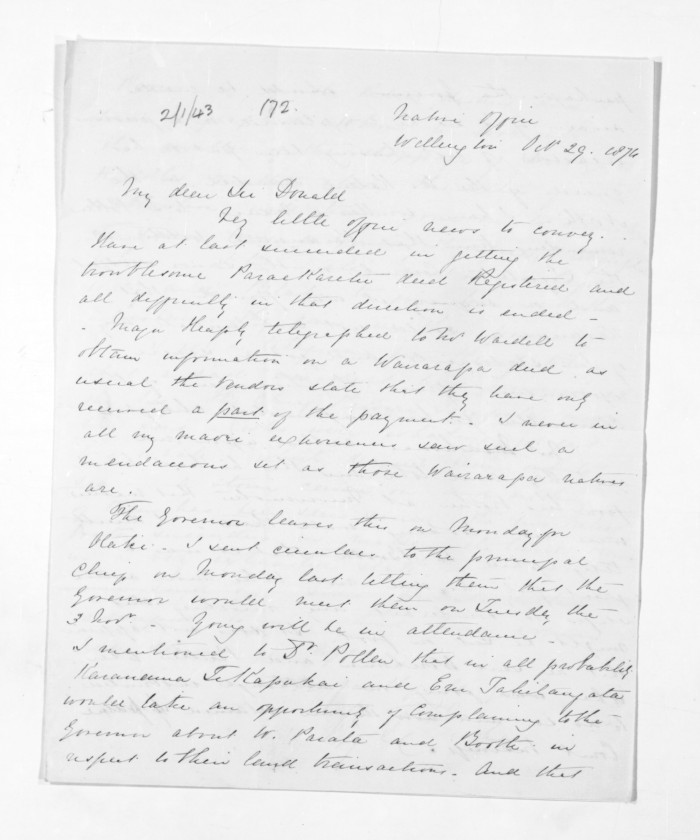 2/1/43 172.
Native Office
Wellington Oct 29. 1874
My dear Sir Donald
Very little office news to convey.
Have at last succeeded in getting the
troublesome ParaeKaretu deed Registered and
all difficulty in that direction is ended -
- Major Heaphy telegraphed to Mr Wardell to
obtain information on a Wairarapa deed as
usual the Vendors state that they have only
received a part of the payment. I never in
all my maori experiences saw such a
mendaceous set as those Wairarapa natives
are.
The Governor leaves this on Monday for
Otaki. I sent circulars to the principal
Chiefs on Monday last telling them that the
Governor would meet them on Tuesday the
3 Novr - Young will be in attendance -
I mentioned to Dr. Pollen that in all probability
Karanama Te Kapukai and Eru Tahitangata
would take an opportunity of Complaining to the
Governor about W. Parata and Booth in
respect to their land transactions. And that